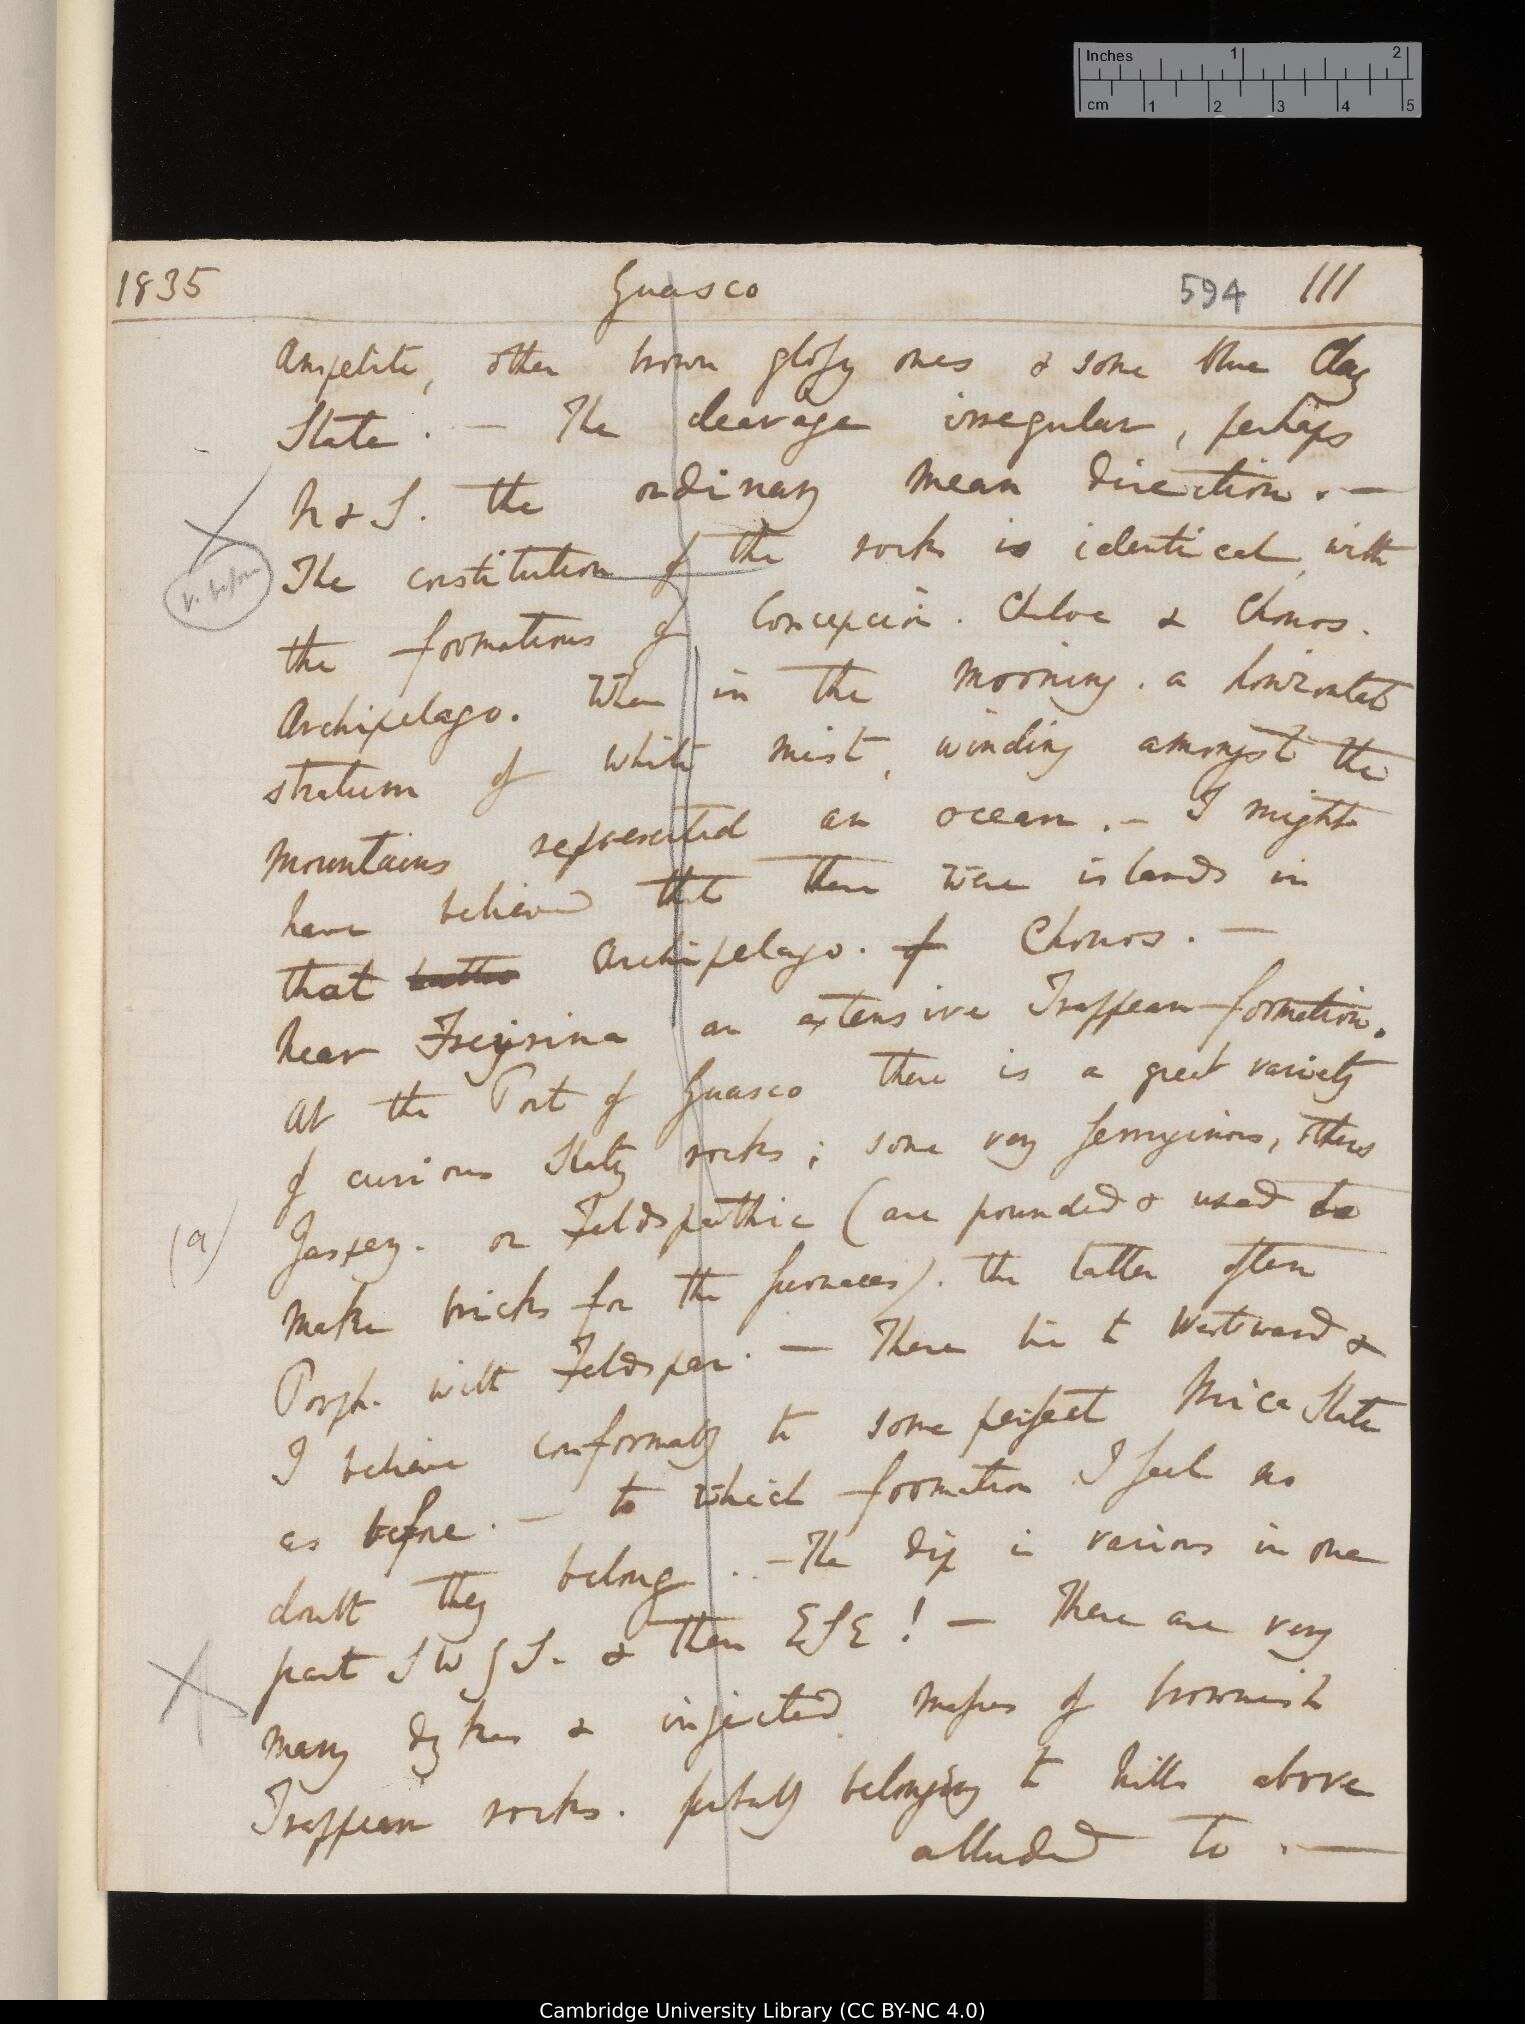 Inches 1 2
cm 1 2 3 4 5
1835 Guasco 594 111
Ampelite, other brown glossy ones & some blue Clay
Slate. — The cleavage irregular, perhaps
N & S. the ordinary mean direction. —
The constitution of the rocks is identical, with
V. before
the formations of Concepcion. Chiloe & Chonos.
Archipelago. When in the morning. a horizontal
stratum of white mist, winding amongst the
mountains represented an ocean. — I might
have believed that there were islands in
that Archipelago. of Chonos. —
Near Freyrina an extensive Trappean formation.
At the Port of Guasco there is a great variety
of curious Slaty rocks; some very ferruginous, others
(a) Jaspery. or Feldspathic (are pounded & used to
make bricks for the furnaces). the latter often
Porph. with Feldspar. — These lie to Westward &
I believe conformably to some perfect Mica Slate
as before. — to which formation I feel no
doubt they belong. — The dip is various in one
part SW S. & then ESE! — There are very
many dykes & injected masses of brownish
Trappean rocks. probably belonging to hills above
alluded to. —
Cambridge University Library (CC BY-NC 4.0)